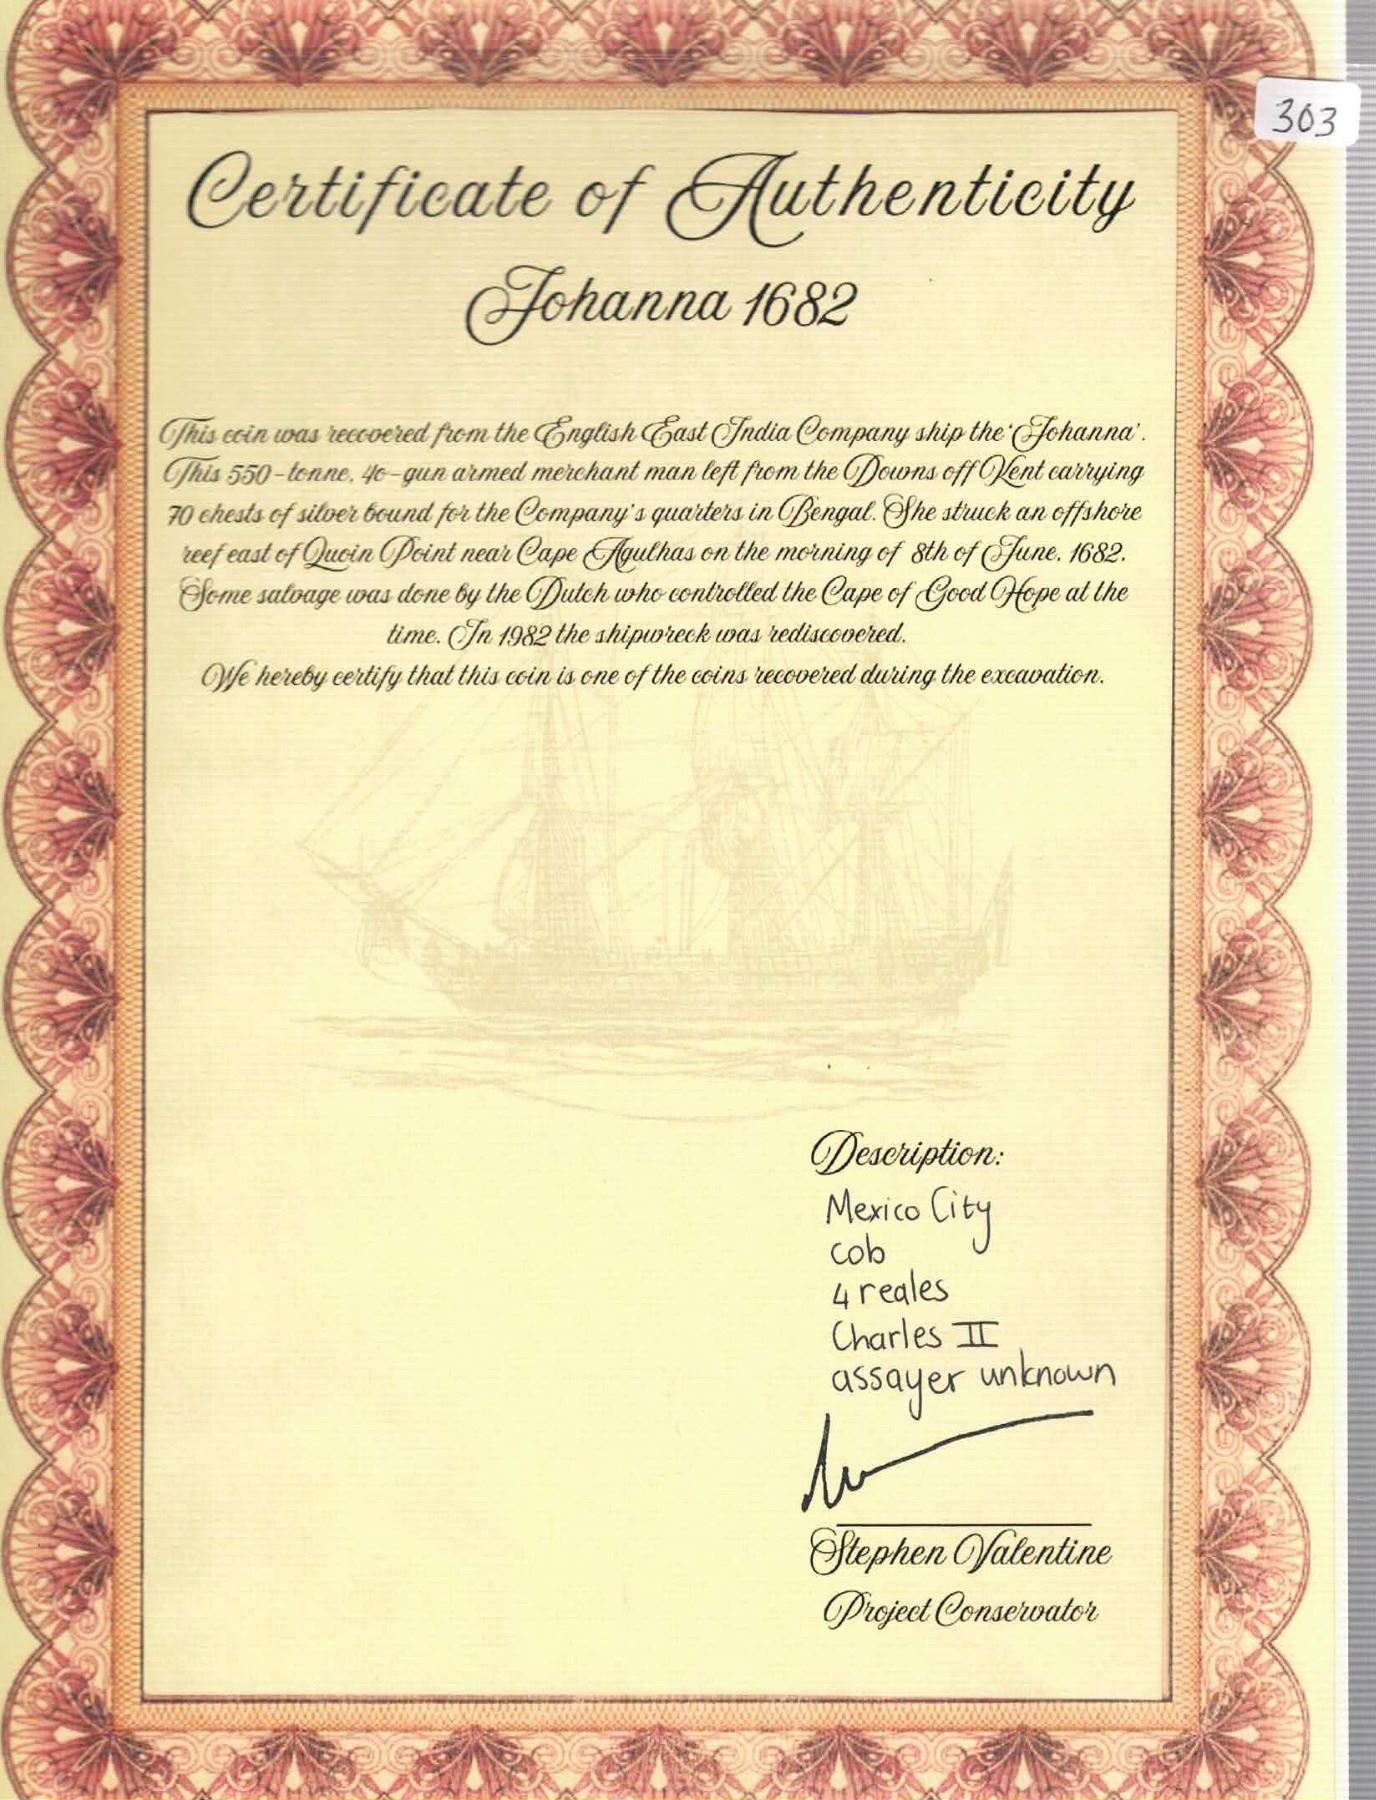 303
Certificate of Authenticity
Johanna 1682
This coin was recovered from the English East India Company ship the 'Johanna'.
This 550-tonne, 40-gun armed merchant man left from the Downs off Kent carrying
70 chests of silver bound for the Company's quarters in Bengal. She struck an offshore
reef east of Quoin Point near Cape Agulhas on the morning of 8th of June, 1682.
Some salvage was done by the Dutch who controlled the Cape of Good Hope at the
time. In 1982 the shipwreck was rediscovered.
We hereby certify that this coin is one of the coins recovered during the excavation.
Description:
Mexico City
cob
4 reales
Charles II
assayer unknown
Stephen Valentine
Project Conservator